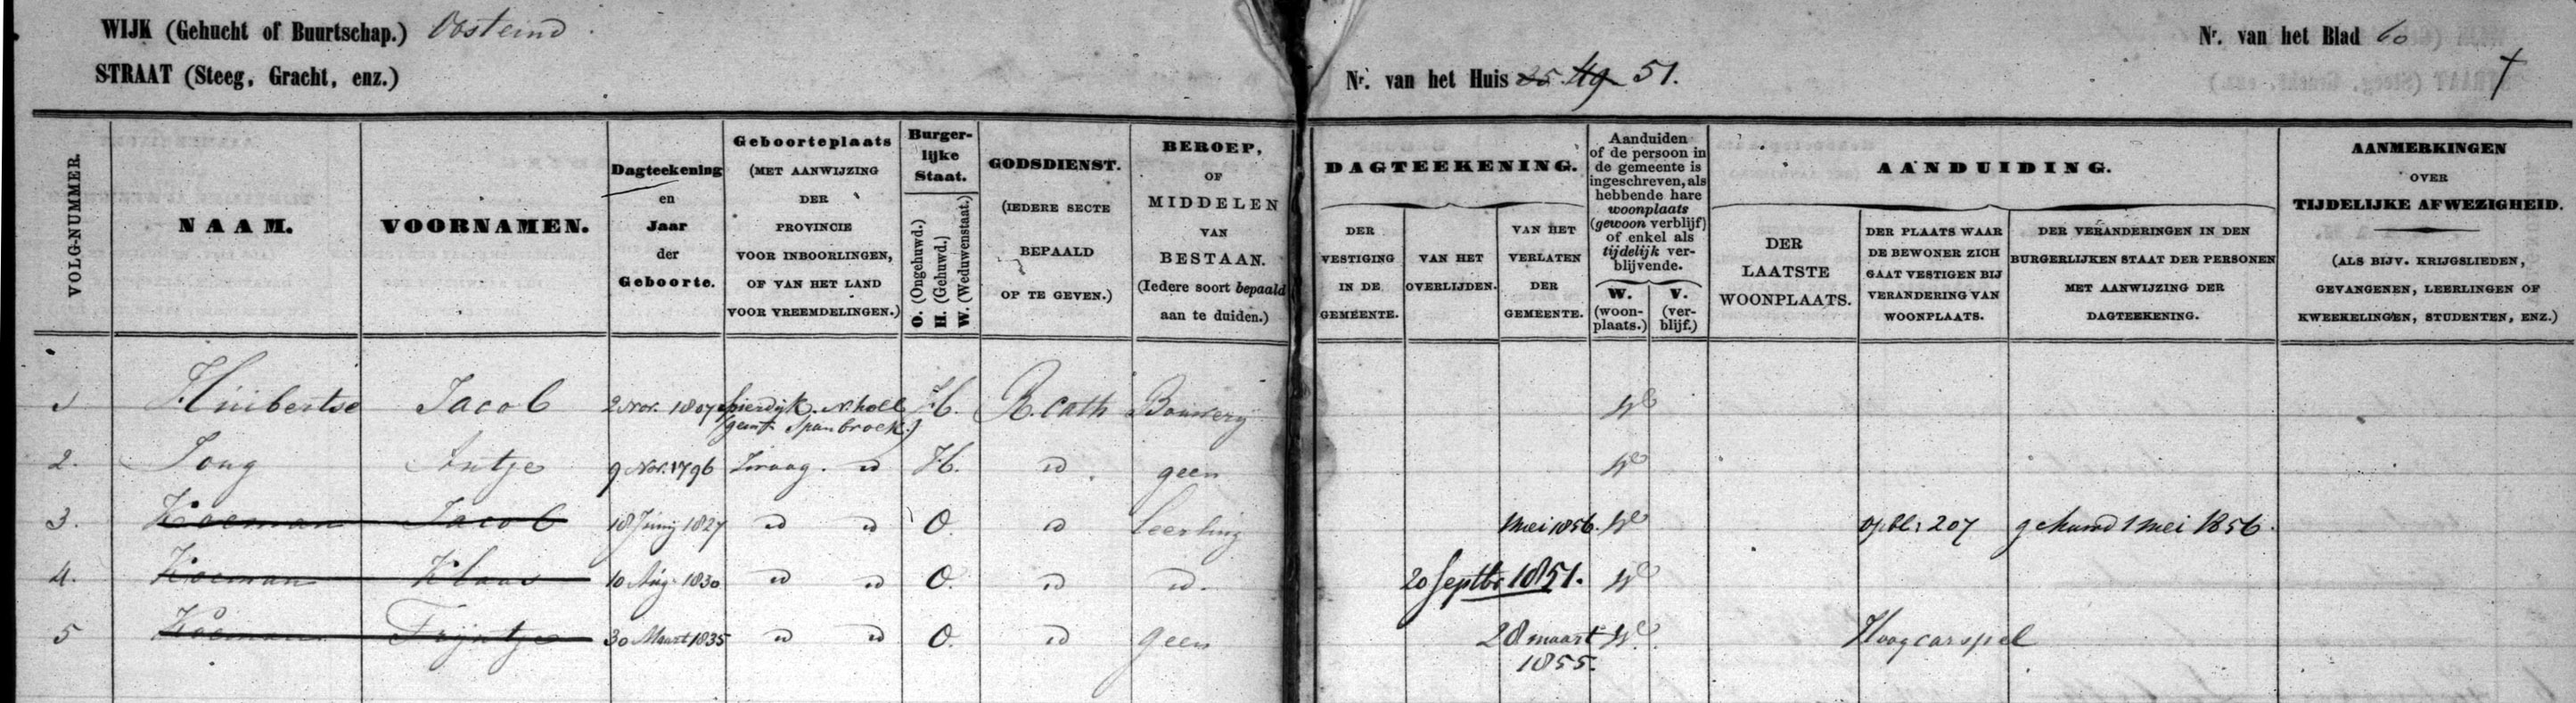 WIJK (Gehucht of Buurtschap.) Oosteind
Nr. van het Blad 60
STRAAT (Steeg, Gracht, enz.)
Nr. van het Huis 25 49 51.
VOLG-NUMMER.
NAAM.
VOORNAMEN.
Dagteekening
en
Jaar
der
Geboorte.
Geboorteplaats
(MET AANWIJZING
DER
PROVINCIE
VOOR INBOORLINGEN,
OF VAN HET LAND
VOOR VREEMDELINGEN.)
Burger-
lijke
Staat.
O. (Ongehuwd.)
H. (Gehuwd.)
W. (Weduwenstaat.)
GODSDIENST.
(IEDERE SECTE
BEPAALD
OP TE GEVEN.)
BEROEP,
OF
MIDDELEN
VAN
BESTAAN.
(Iedere soort bepaald
aan te duiden.)
DAGTEEKENING.
DER
VESTIGING
IN DE
GEMEENTE.
VAN HET
OVERLIJDEN.
VAN HET
VERLATEN
DER
GEMEENTE.
Aanduiden
of de persoon in
de gemeente is
ingeschreven, als
hebbende hare
woonplaats
(gewoon verblijf)
of enkel als
tijdelijk ver-
blijvende.
W.
(woon-
plaats.)
V.
(ver-
blijf.)
AANDUIDING.
DER
LAATSTE
WOONPLAATS.
DER PLAATS WAAR
DE BEWONER ZICH
GAAT VESTIGEN BIJ
VERANDERING VAN
WOONPLAATS.
DER VERANDERINGEN IN DEN
BURGERLIJKEN STAAT DER PERSONEN
MET AANWIJZING DER
DAGTEEKENING.
AANMERKINGEN
OVER
TIJDELIJKE AFWEZIGHEID.
(ALS BIJV. KRIJGSLIEDEN,
GEVANGENEN, LEERLINGEN OF
KWEEKELINGEN, STUDENTEN, ENZ.)
1 Huibertse Jacob 2 Nov. 1807 Spierdijk. N.holl H. R. Cath Bouwerij W
(gemt. Spanbroek.)
2. Jong Antje 9 Nov. 1796 Zwaag. id H. id geen W
3. Koeman Jacob 18 Junij 1827 id id O. id leerling 1 mei 1856. W op bl: 207 gehuwd 1 mei 1856.
4. Koeman Klaas 10 Aug. 1830 id id O. id id. 20 Septbr 1851. W
5 Koeman Trijntje 30 Maart 1835 id id O. id geen 28 maart W. Hoogcarspel
1855.